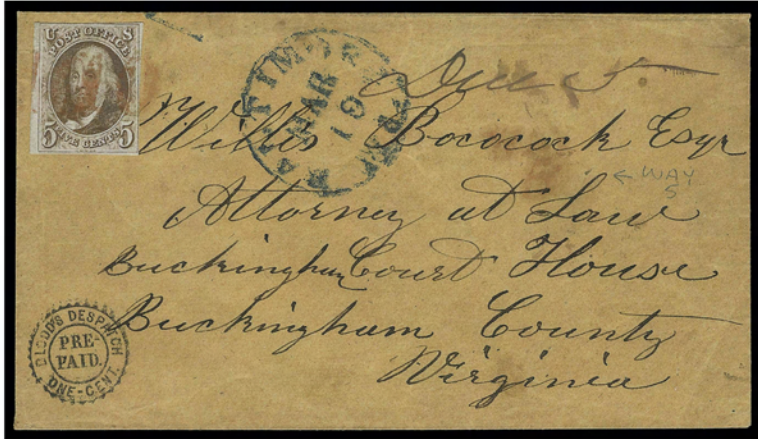 U S
POST OFFICE
5 FIVE CENTS 5
BALTIMORE Md.
MAR
19
Due 5
Willis Bocock Esqr
← WAY
5
Attorney at Law
Buckingham Court House
Buckingham County
Virginia
D.O.BLOOD'S DESPATCH
PRE-
PAID.
ONE-CENT.